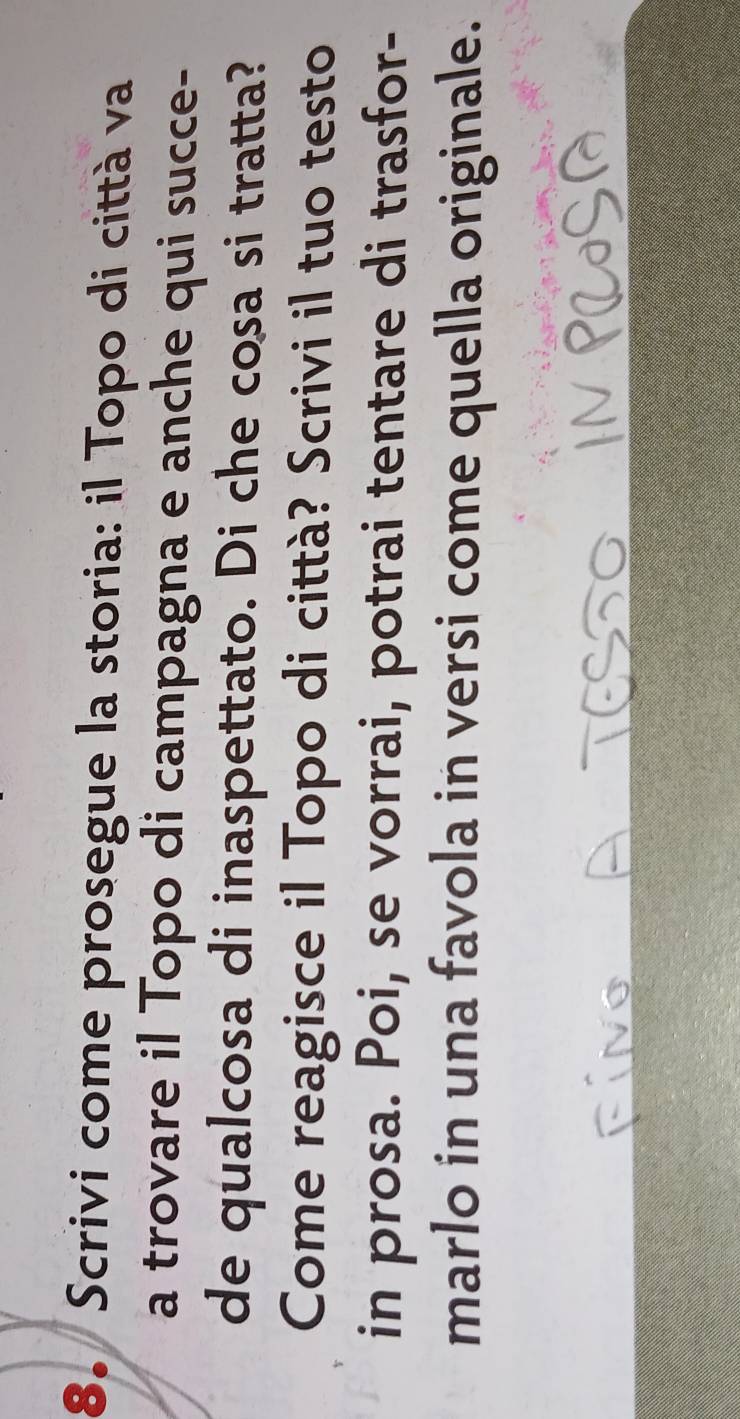 8. Scrivi come prosegue la storia: il Topo di città va
a trovare il Topo di campagna e anche qui succe-
de qualcosa di inaspettato. Di che cosa si tratta?
Come reagisce il Topo di città? Scrivi il tuo testo
in prosa. Poi, se vorrai, potrai tentare di trasfor-
marlo in una favola in versi come quella originale.
FINO A TESSO IN PROSA